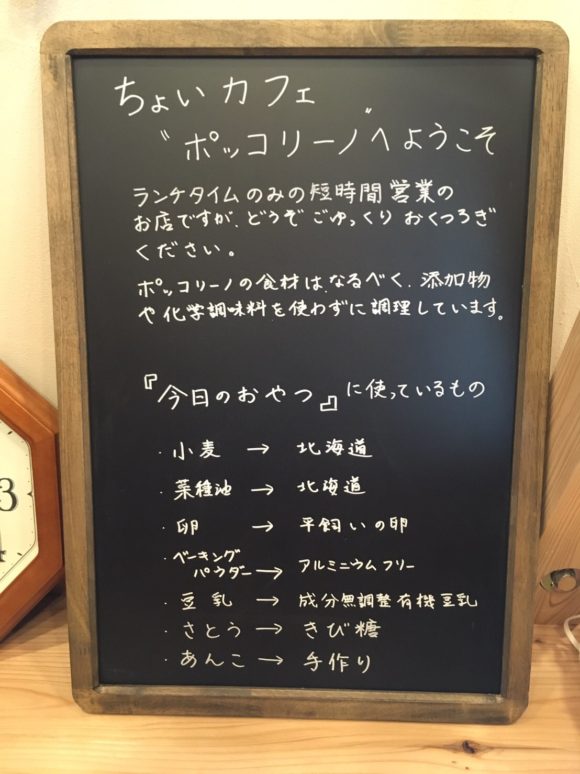 ちょいカフェ
〝ポッコリーノ〟へようこそ
ランチタイムのみの短時間営業の
お店ですが、どうぞごゆっくりおくつろぎ
ください。
ポッコリーノの食材は、なるべく、添加物
や化学調味料を使わずに調理しています。
『今日のおやつ』に使っているもの
・小麦 → 北海道
・菜種油 → 北海道
・卵 → 平飼いの卵
・ベーキング
パウダー → アルミニウムフリー
・豆乳 → 成分無調整有機豆乳
・さとう → きび糖
・あんこ → 手作り
3